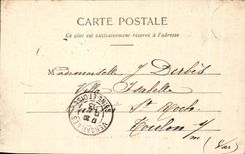 CARTE POSTALE
Ce côté est exclusivement réservé à l'adresse
Mademoiselle J Derbès
Villa Isabelle
St Roch
Toulon s/
m (Var)
VERSAILLES
SEINE-ET-OISE